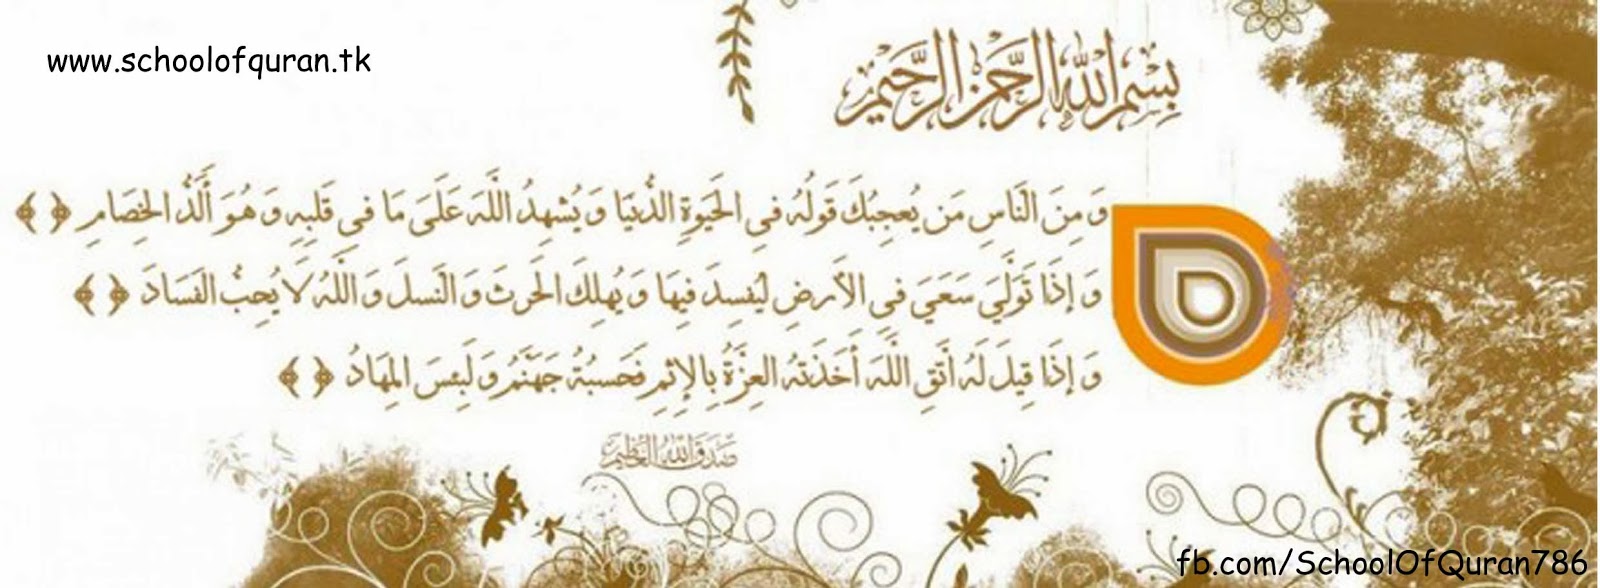 www.schoolofquran.tk
بِسْمِ اللَّهِ الرَّحْمَٰنِ الرَّحِيمِ
وَمِنَ النَّاسِ مَن يُعجِبُكَ قَولُهُ فِي الحَيَوةِ الدُّنيَا وَيُشهِدُ اللَّهَ عَلَىَ مَا فِي قَلبِهِ وَهُوَ أَلَدُّ الخِصَامِ ﴿ ﴾
وَإِذَا تَوَلَّىَ سَعَىَ فِي الأَرضِ لِيُفسِدَ فِيهَا وَيُهلِكَ الحَرثَ وَالنَّسلَ وَاللَّهُ لاَ يُحِبُّ الفَسَادَ ﴿ ﴾
وَإِذَا قِيلَ لَهُ أتَّقِ اللَّهَ أَخَذَتهُ العِزَّةُ بِالإِثمِ فَحَسبُهُ جَهَنَّمُ وَلَبِئسَ المِهَادُ ﴿ ﴾
صدق الله العظيم
fb.com/SchoolOfQuran786